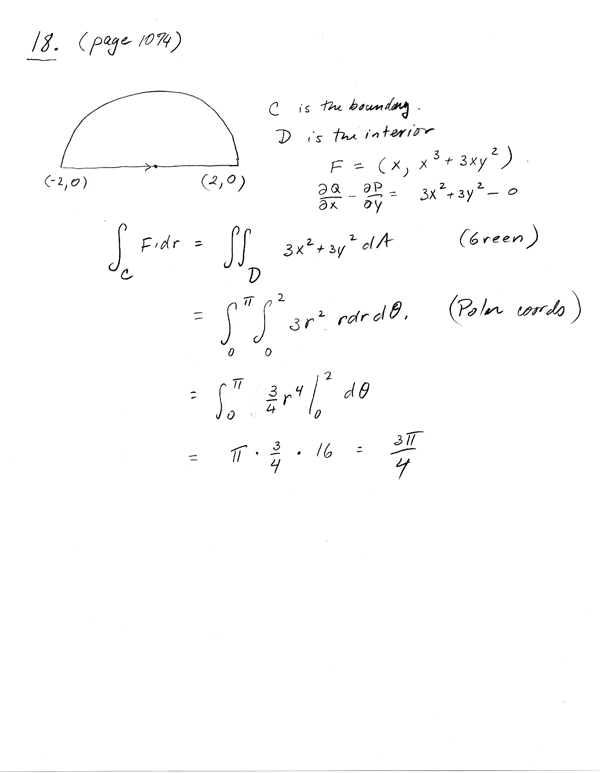 18. (page 1074)
C is the boundary.
D is the interior
F = (x, x³ + 3xy²).
(-2,0) (2,0)
∂Q/∂x - ∂P/∂y = 3x² + 3y² - 0
∫_C F·dr = ∬_D 3x² + 3y² dA (Green)
= ∫₀^π ∫₀² 3r² r dr dθ. (Polar coords)
= ∫₀^π 3/4 r⁴ |₀² dθ
= π · 3/4 · 16 = 3π/4